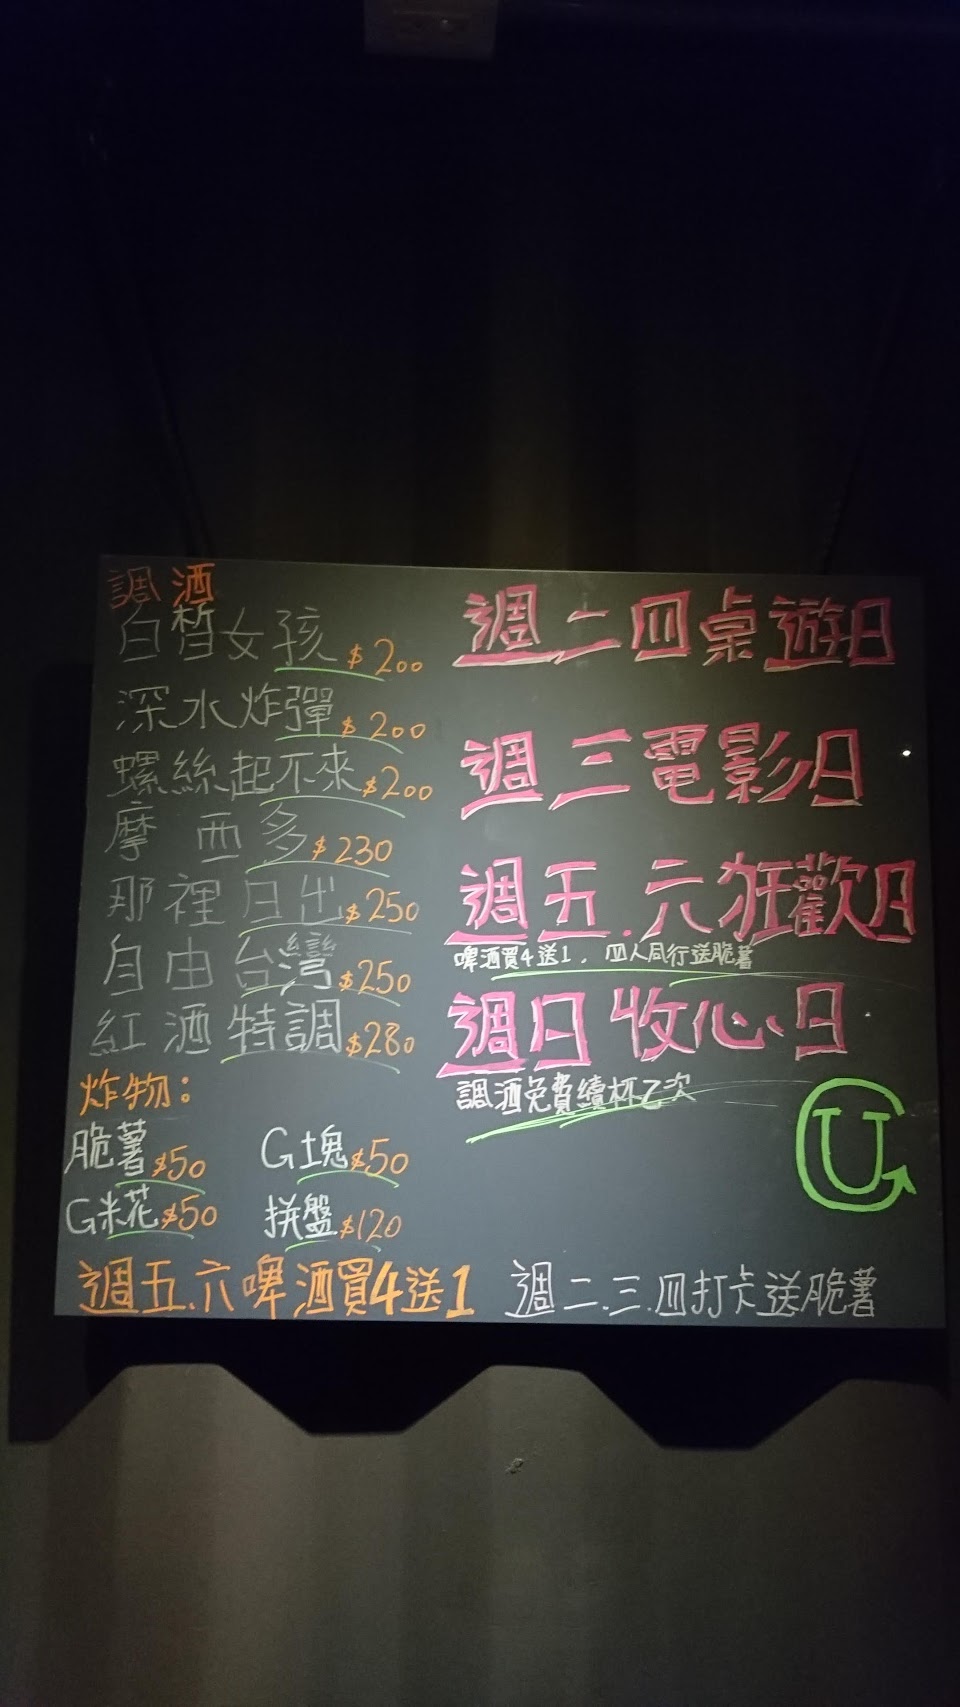 調酒
白皙女孩 $200
深水炸彈 $200
螺絲起不來 $200
摩西多 $230
那裡日出 $250
自由台灣 $250
紅酒特調 $280
炸物：
脆薯 $50 G塊 $50
G米花 $50 拼盤 $120
週五.六啤酒買4送1
週二四桌遊日
週三電影日
週五.六狂歡日
啤酒買4送1，四人同行送脆薯
週日收心日
調酒免費續杯乙次
U
週二.三.四打卡送脆薯